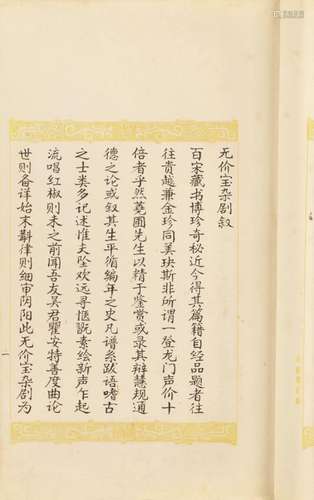 无价宝杂剧叙
百宋藏书博珍奇秘近今得其篇籍自经品题者往
往贵越兼金珍同美玦斯非所谓一登龙门声价十
倍者乎然荛圃先生以精于鉴赏或录其辩慧规通
德之论或叙其生平循编年之史凡谱系跋语嗜古
之士类多记述惟夫坠欢远寻惬翫素绘新声乍起
流唱红椒则未之前闻吾友吴君瞿安特善度曲论
世则备详始末斠律则细审阴阳此无价宝杂剧为
一